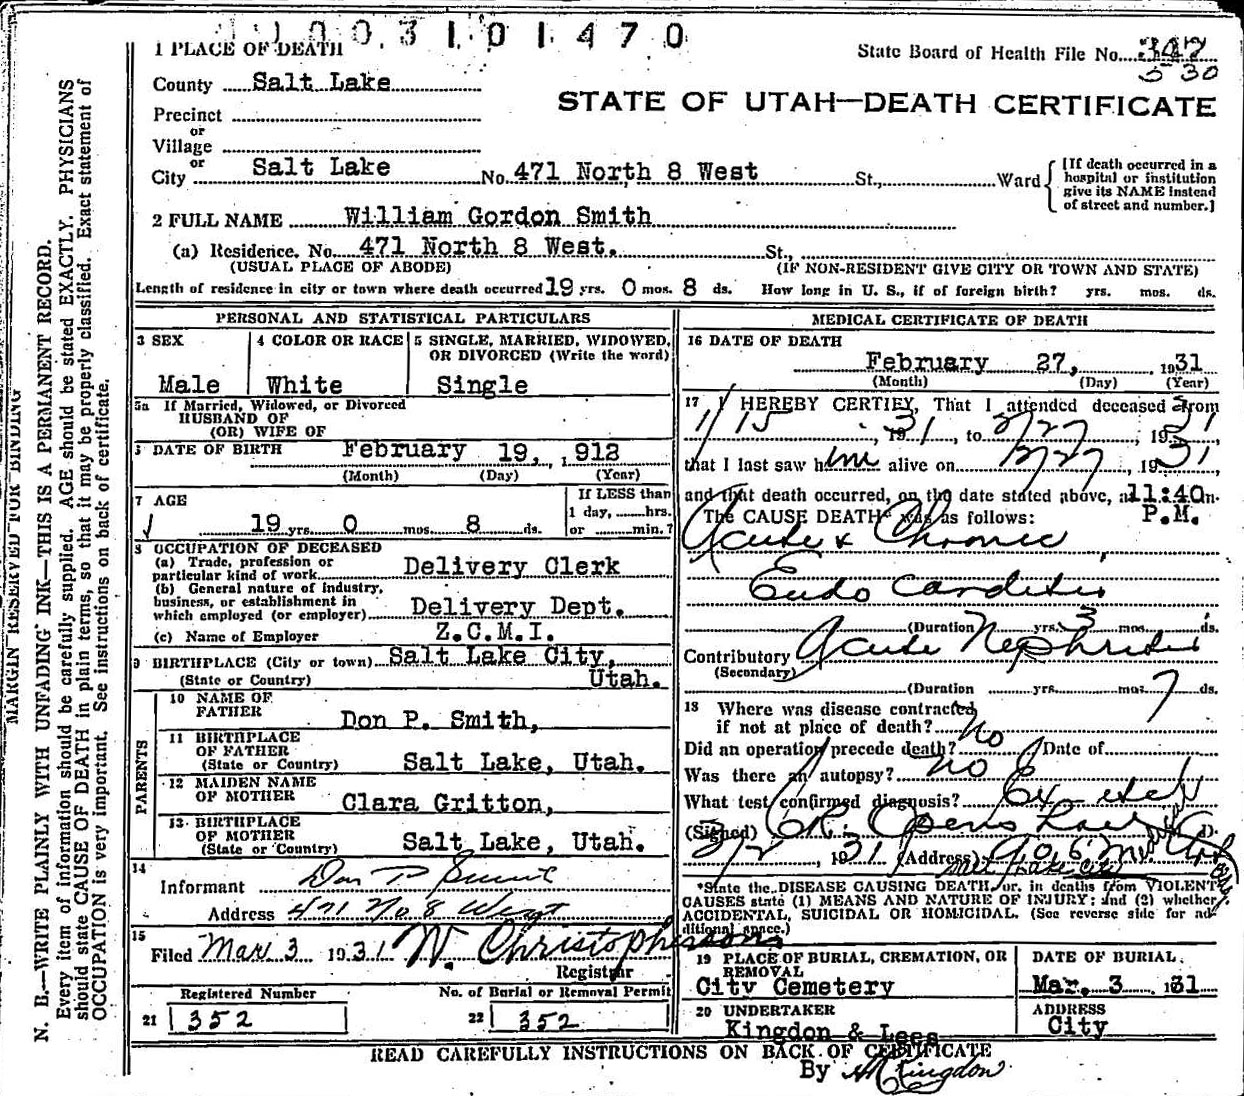 1003101470
1 PLACE OF DEATH
State Board of Health File No. 347
530
County Salt Lake
STATE OF UTAH—DEATH CERTIFICATE
Precinct
or
Village
or
City Salt Lake No. 471 North 8 West St., Ward
[If death occurred in a
hospital or institution
give its NAME instead
of street and number.]
2 FULL NAME William Gordon Smith
(a) Residence. No. 471 North 8 West. St.,
(USUAL PLACE OF ABODE) (IF NON-RESIDENT GIVE CITY OR TOWN AND STATE)
Length of residence in city or town where death occurred 19 yrs. 0 mos. 8 ds. How long in U. S., if of foreign birth? yrs. mos. ds.
PERSONAL AND STATISTICAL PARTICULARS
3 SEX
Male
4 COLOR OR RACE
White
5 SINGLE, MARRIED, WIDOWED,
OR DIVORCED (Write the word)
Single
5a If Married, Widowed, or Divorced
HUSBAND OF
(OR) WIFE OF
DATE OF BIRTH February 19, 1912
(Month) (Day) (Year)
7 AGE
19 yrs. 0 mos. 8 ds.
If LESS than
1 day, hrs.
or min.?
8 OCCUPATION OF DECEASED
(a) Trade, profession or
particular kind of work Delivery Clerk
(b) General nature of industry,
business, or establishment in
which employed (or employer) Delivery Dept.
(c) Name of Employer Z.C.M.I.
9 BIRTHPLACE (City or town) Salt Lake City,
(State or Country) Utah.
PARENTS
10 NAME OF
FATHER Don P. Smith,
11 BIRTHPLACE
OF FATHER
(State or Country) Salt Lake, Utah.
12 MAIDEN NAME
OF MOTHER Clara Gritton,
13 BIRTHPLACE
OF MOTHER
(State or Country) Salt Lake, Utah.
14
Informant Don P Smith
Address 471 No 8 West
15
Filed Mar 3 1931 N. Christopherson
Registrar
Registered Number
21 352
No. of Burial or Removal Permit
22 352
MEDICAL CERTIFICATE OF DEATH
16 DATE OF DEATH
February 27, 1931
(Month) (Day) (Year)
17 I HEREBY CERTIFY, That I attended deceased from
1/15, 1931, to 2/27, 1931,
that I last saw him alive on 2/27, 1931
and that death occurred, on the date stated above, at 11:40 m.
P.M.
The CAUSE DEATH* was as follows:
Acute & Chronic
Endo Carditis
(Duration yrs. 3 mos. ds.
Contributory Acute Nephritis
(Secondary)
(Duration yrs. mos. 7 ds.
18 Where was disease contracted
if not at place of death?
Did an operation precede death? No Date of
Was there an autopsy? no
What test confirmed diagnosis?
(Signed)
, 1931 (Address) 906
Salt Lake City
*State the DISEASE CAUSING DEATH, or, in deaths from VIOLENT
CAUSES state (1) MEANS AND NATURE OF INJURY; and (2) whether
ACCIDENTAL, SUICIDAL OR HOMICIDAL. (See reverse side for ad-
ditional space.)
19 PLACE OF BURIAL, CREMATION, OR
REMOVAL
City Cemetery
DATE OF BURIAL
Mar. 3 1931
20 UNDERTAKER
Kingdon & Lees
ADDRESS
City
READ CAREFULLY INSTRUCTIONS ON BACK OF CERTIFICATE
By Kingdon
MARGIN RESERVED FOR BINDING
N. B.—WRITE PLAINLY WITH UNFADING INK—THIS IS A PERMANENT RECORD.
Every item of information should be carefully supplied. AGE should be stated EXACTLY. PHYSICIANS
should state CAUSE OF DEATH in plain terms, so that it may be properly classified. Exact statement of
OCCUPATION is very important. See instructions on back of certificate.